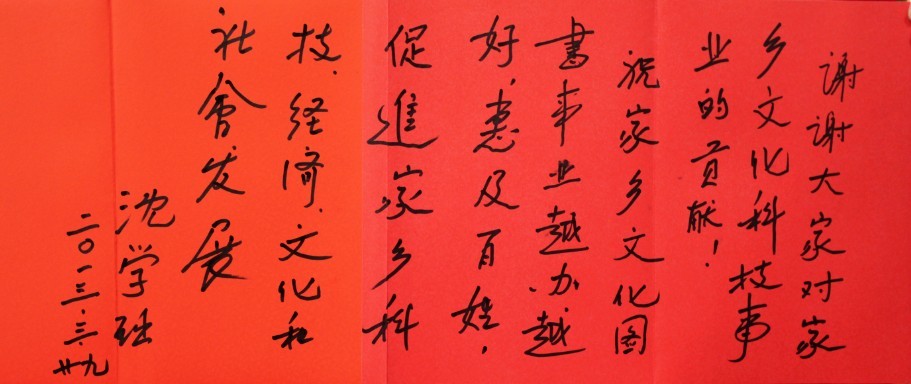 谢谢大家对家
乡文化科技事
业的贡献！
祝家乡文化图
書事业越办越
好，惠及百姓，
促進家乡科
技、经济、文化和
社會发展
沈学础
二〇一三.三.廿九